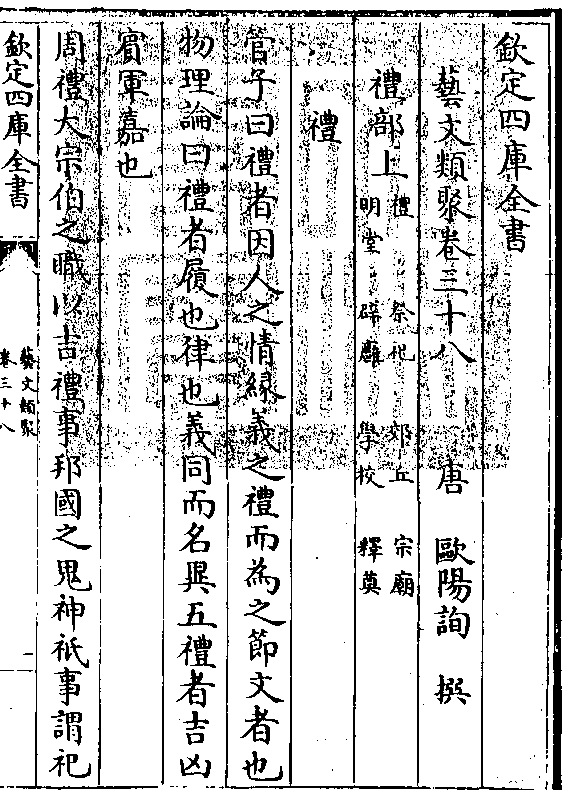 欽定四庫全書
藝文類聚卷三十八　唐　歐陽詢　撰
禮部上　禮　祭祀　郊丘　宗廟
明堂　辟雝　學校　釋奠
禮
管子曰禮者因人之情縁義之禮而為之節文者也
物理論曰禮者履也律也義同而名異五禮者吉凶
賔軍嘉也
周禮大宗伯之職以吉禮事邦國之鬼神祇事謂祀
欽定四庫全書
藝文類聚
卷三十八
一